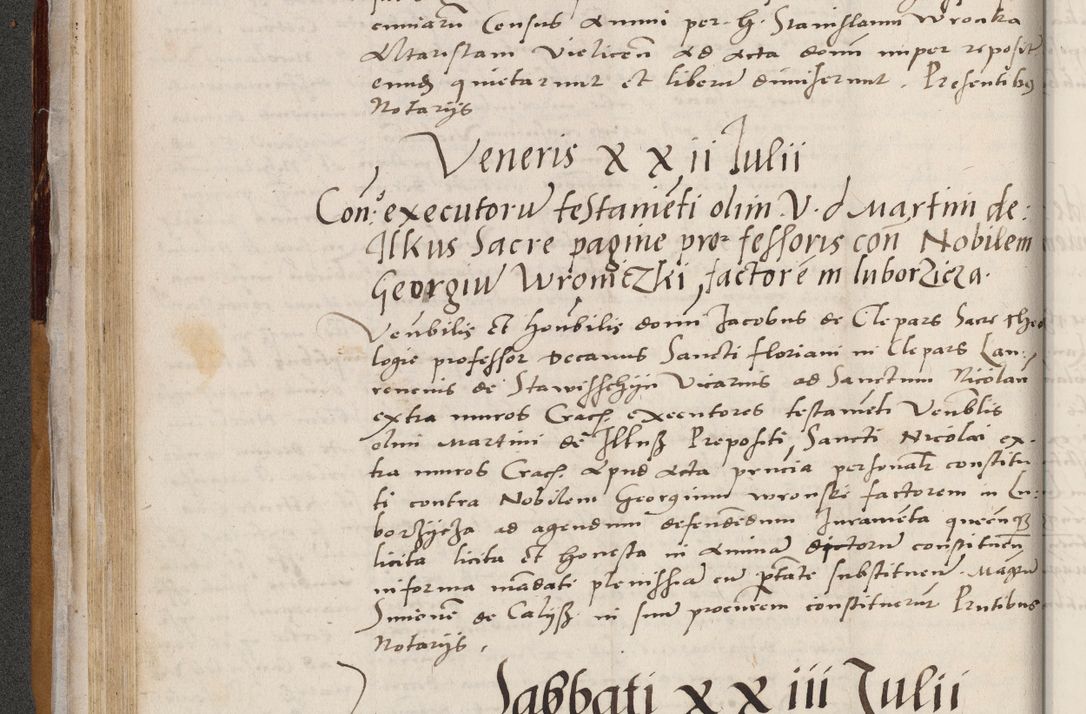 enniarū Census Annui per H. Stanislaum Wronka
Altaristam Vielicen̄ ad acta domī nuper reposit
eundē quietarunt et liberū dimiserunt. Presentibus
Notarijs
Veneris XXII Julii
Con: executorū testamēti olim V. d Martini de:
Ilkus Sacre pagine professoris con̄ Nobilem
Georgiū Wroniczki factorē in luborzicza.
Venerbilis Et honrbilis domī Jacobus de Clepars Sacre Theo
logie professor Decanus Sancti Floriani in Clepars Lau-
rencius de Stawisschyn Vicarius ad Sanctum Nicolaū
extra muros Crac. executores testamēti Venrblis
olim Martini de Ilkusz Prepositi Sancti Nicolai ex-
tra muros Crac. Apud Acta prncia personalr constitu-
ti contra Nobilem Georgium Wronske factorem in Lu-
borzycza ad agendum defendēdum Juramēta quecūq
licita licita Et honesta in animā dictorū constituen̄
in forma mādati plenissīa cū ptāte substituendī Magrū
Simonē de Calysz in suū procurem constituerūt Prntibus
Notarijs.
Sabbati XXIII Julii